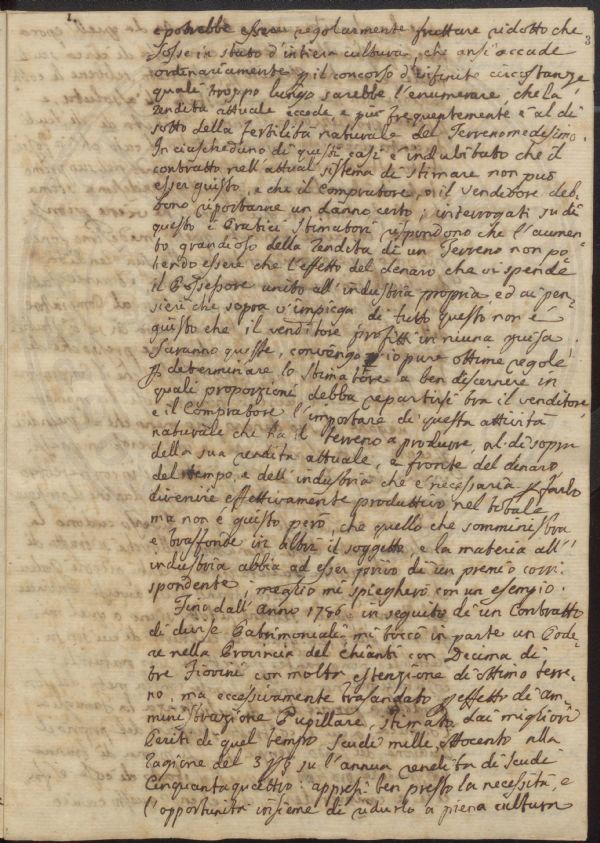 3
e potrebbe essere regolarmente fruttare ridotto che
fosse in stato d'intiera cultura, che anzi accade
ordinariamente p il concorso d'infinite circostanze
quali troppo lungo sarebbe l'enumerare, che la
rendita attuale eccede e più frequentemente è al di
sotto della fertilità naturale del Terreno medesimo.
In ciascheduno di questi casi è indubitato che il
contratto nell'attual sistema di stimare non può
esser giusto, e che il Compratore, o il venditore deb-
bono riportarne un danno certo; interrogati su di
questo i Pratici stimatori rispondono che l'aumen-
to grandioso della rendita di un Terreno non po-
tendo essere che l'effetto del denaro che vi spende
il Possessore unito all'industria propria ed ai pen-
sieri che sopra v'impiega di tutto questo non è
giusto che il venditore profitti in niuna guisa.
Saranno queste, convengo io pure ottime regole
p determinare lo stimatore a ben discernere in
quali proporzioni debba repartirsi tra il venditore
e il Compratore l'importare di questa attività
naturale che ha il terreno a produrre, al di sopra
della sua rendita attuale, a fronte del denaro
del tempo, e dell'industria che è necessaria p farlo
divenire effettivamente produttivo nel totale
ma non è giusto però, che quello che somministra
e trasfonde in altri il soggetto, e la materia all'
industria abbia ad esser privo di un premio corri-
spondente; meglio mi spiegherò con un esempio.
Fino dall'Anno 1786 in seguito di un Contratto
di divise Patrimoniali mi toccò in parte un Pode-
re nella Provincia del Chianti con Decima di
tre Fiorini con molta estenzione di ottimo terre-
no, ma eccessivamente trasandato p effetto di am-
ministrazione Pupillare, stimato dai migliori
Periti di quel tempo scudi mille Ottocento alla
ragione del 3 p% su l'annua rendita di scudi
Cinquantaquattro: appresi ben presto la necessità, e
l'opportunità insieme di ridurlo a piena cultura